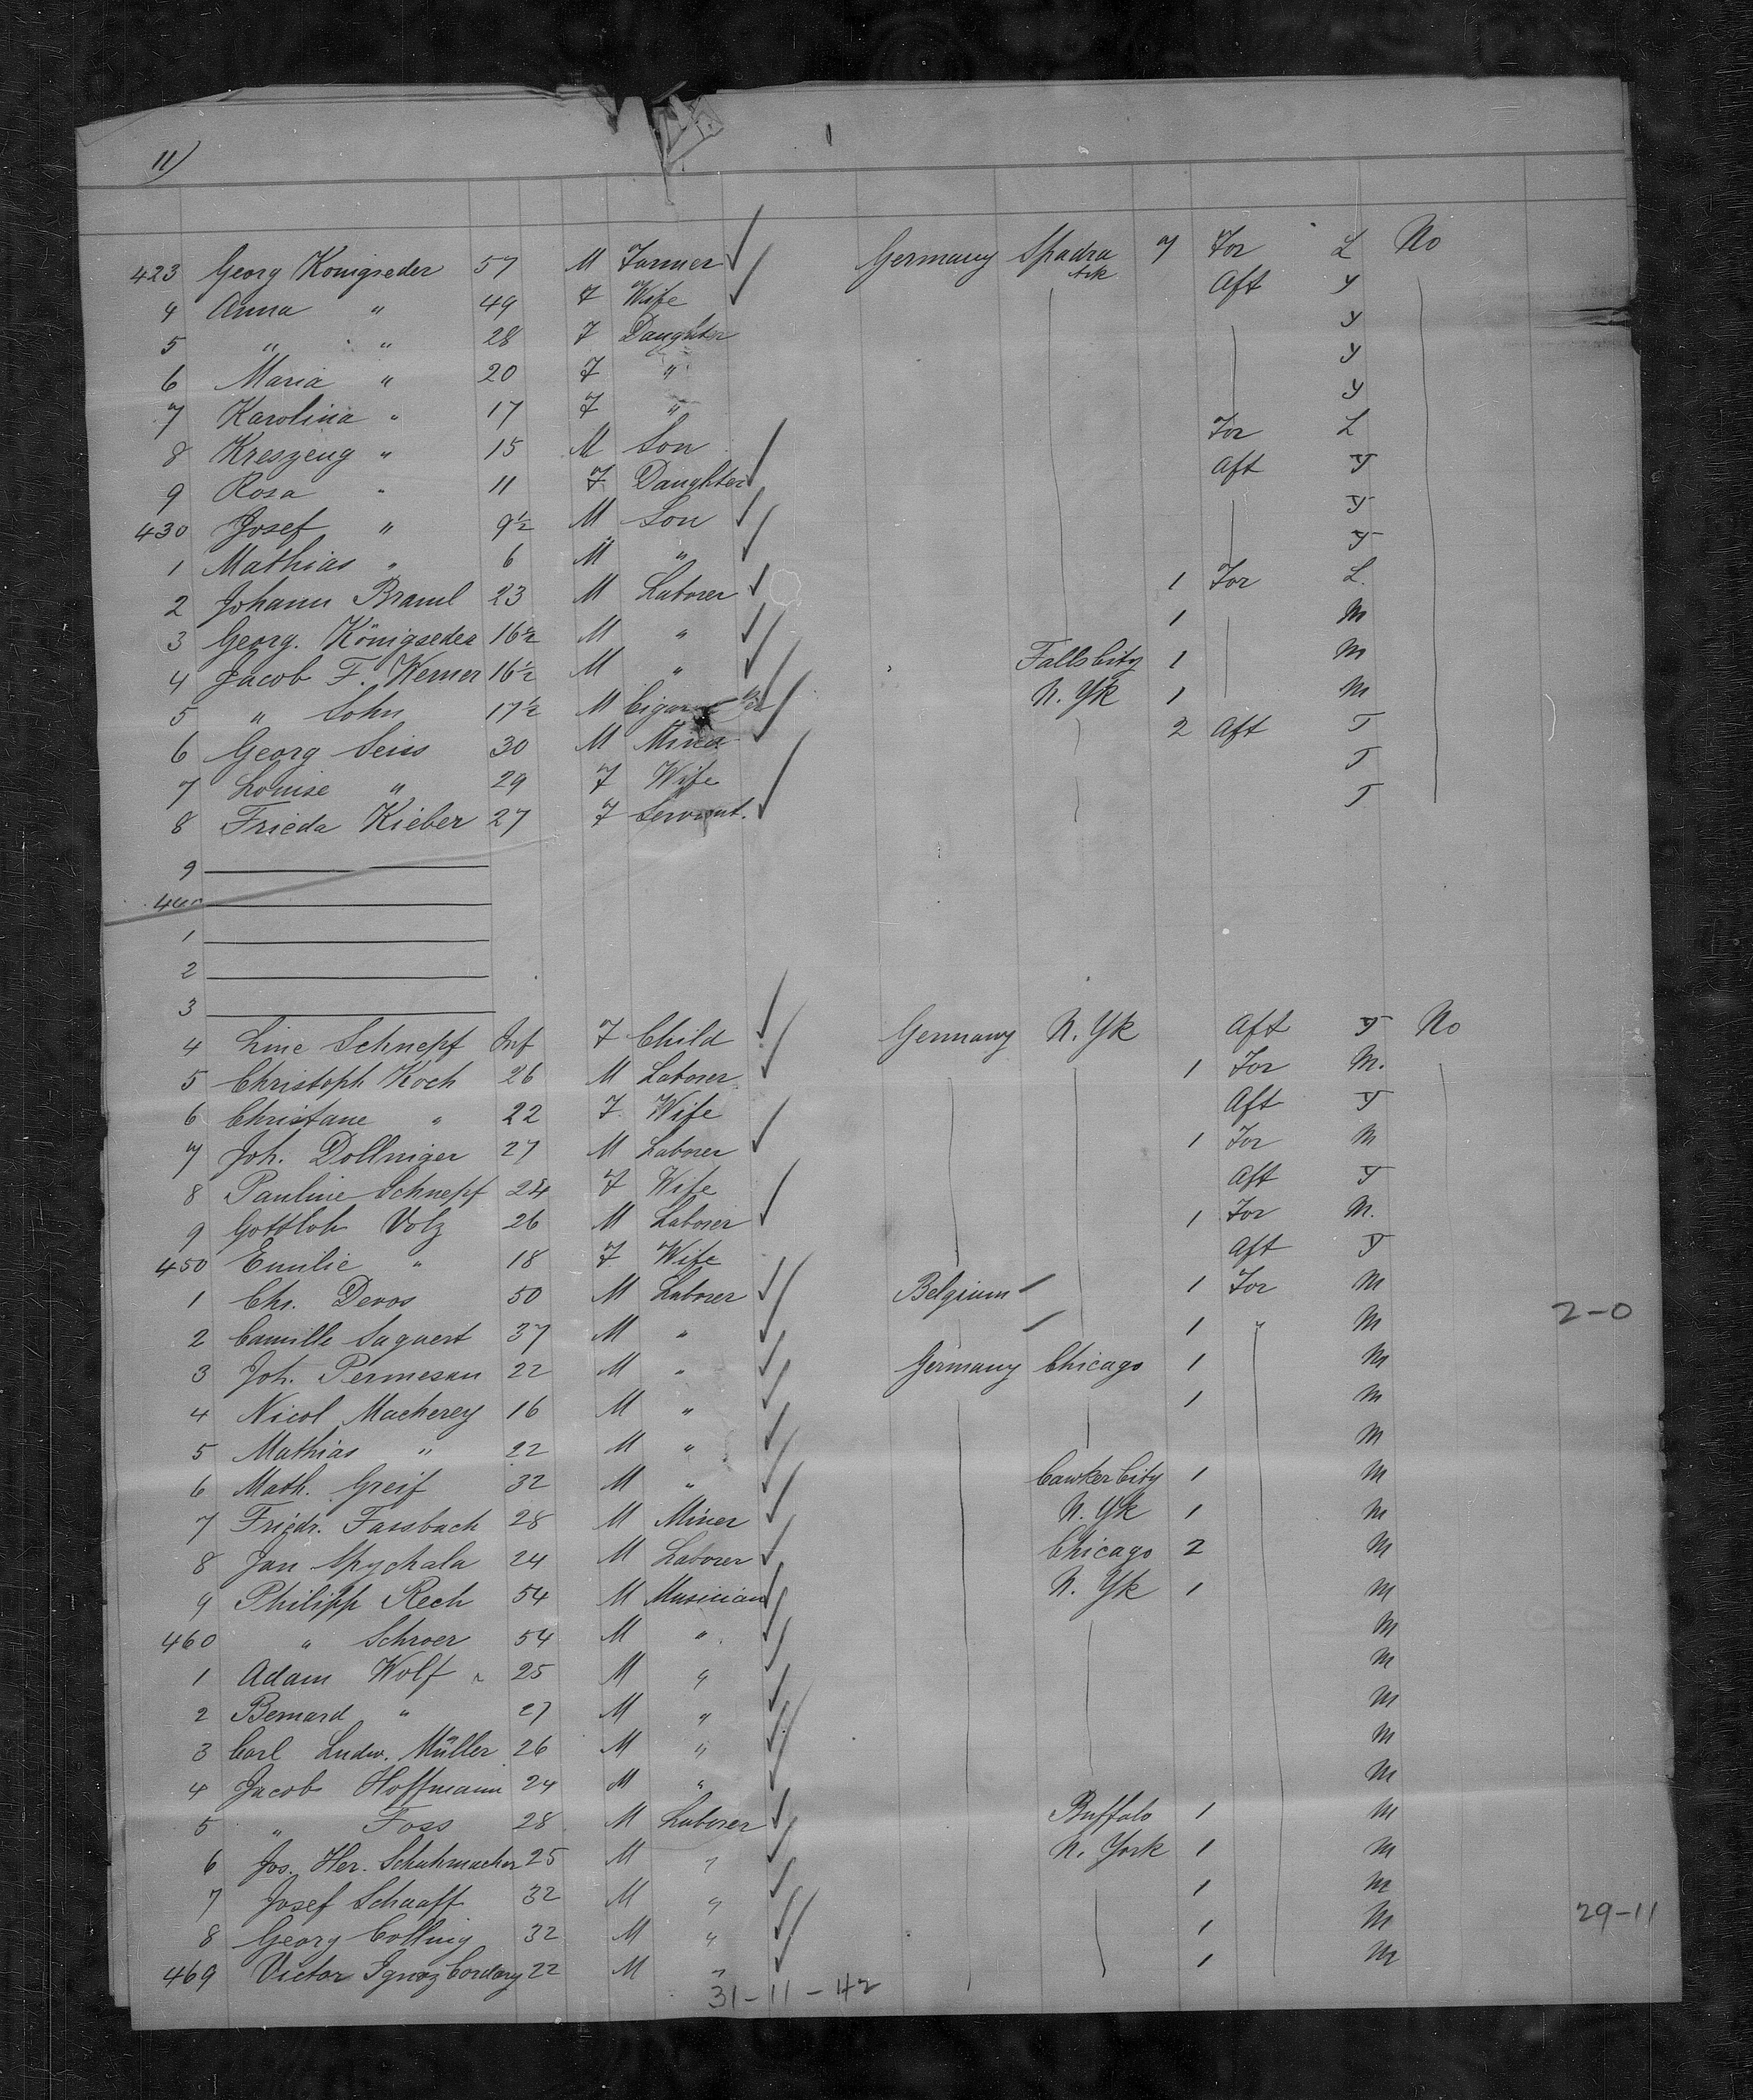 11)
423 Georg Konigseder 57 M Farmer Germany Spadra Ark 7 For L No
4 Anna " 49 F Wife Aft Y
5 " " 28 F Daughter Y
6 Maria " 20 F " Y
7 Karolina " 17 F " Y
8 Kreszeug " 15 M Son For L
9 Rosa " 11 F Daughter Aft Y
430 Josef " 9½ M Son Y
1 Mathias " 6 M " Y
2 Johann Braml 23 M Laborer 1 For L.
3 Georg. Königseder 16½ M " 1 M
4 Jacob F. Werner 16½ M " Falls City 1 M
5 " Sohn 17½ M N. Yk 1 M
6 Georg Seiss 30 M Miner 2 Aft T
7 Louise " 29 F Wife T
8 Frieda Kieber 27 F Servant. T
9
440
1
2
3
4 Line Schnepf Inf F Child Germany N. Yk Aft Y No
5 Christoph Koch 26 M Laborer 1 For M.
6 Christane " 22 F Wife Aft Y
7 Joh. Dollniger 27 M Laborer 1 For M
8 Pauline Schnepf 24 F Wife Aft Y
9 Gottlob Volz 26 M Laborer 1 For M.
450 Emilie " 18 F Wife Aft Y
1 Chr. Devos 50 M Laborer Belgium 1 For M
2-0
2 Camille Saguert 37 M " 1 " M
3 Joh. Permesan 22 M " Germany Chicago 1 M
4 Nicol Macherey 16 M " 1 M
5 Mathias " 22 M " M
6 Math. Greif 32 M " Cawker City 1 M
7 Friedr. Fassbach 28 M Miner N. Yk 1 M
8 Jan Spychala 24 M Laborer Chicago 2 M
9 Philipp Rech 54 M Musician N. Yk 1 M
460 " Schroer 54 M " M
1 Adam Wolf 25 M " M
2 Bernard " 27 M " M
3 Carl Ludw. Müller 26 M " M
4 Jacob Hoffmann 24 M " M
5 " Foss 28 M Laborer Buffalo 1 M
6 Jos. Her. Schuhmacher 25 M " N. York 1 M
7 Josef Schaaff 32 M " 1 M
8 Georg Colling 32 M " 1 M
29-11
469 Victor Ignaz Cordary 22 M " 1 M
31-11-42